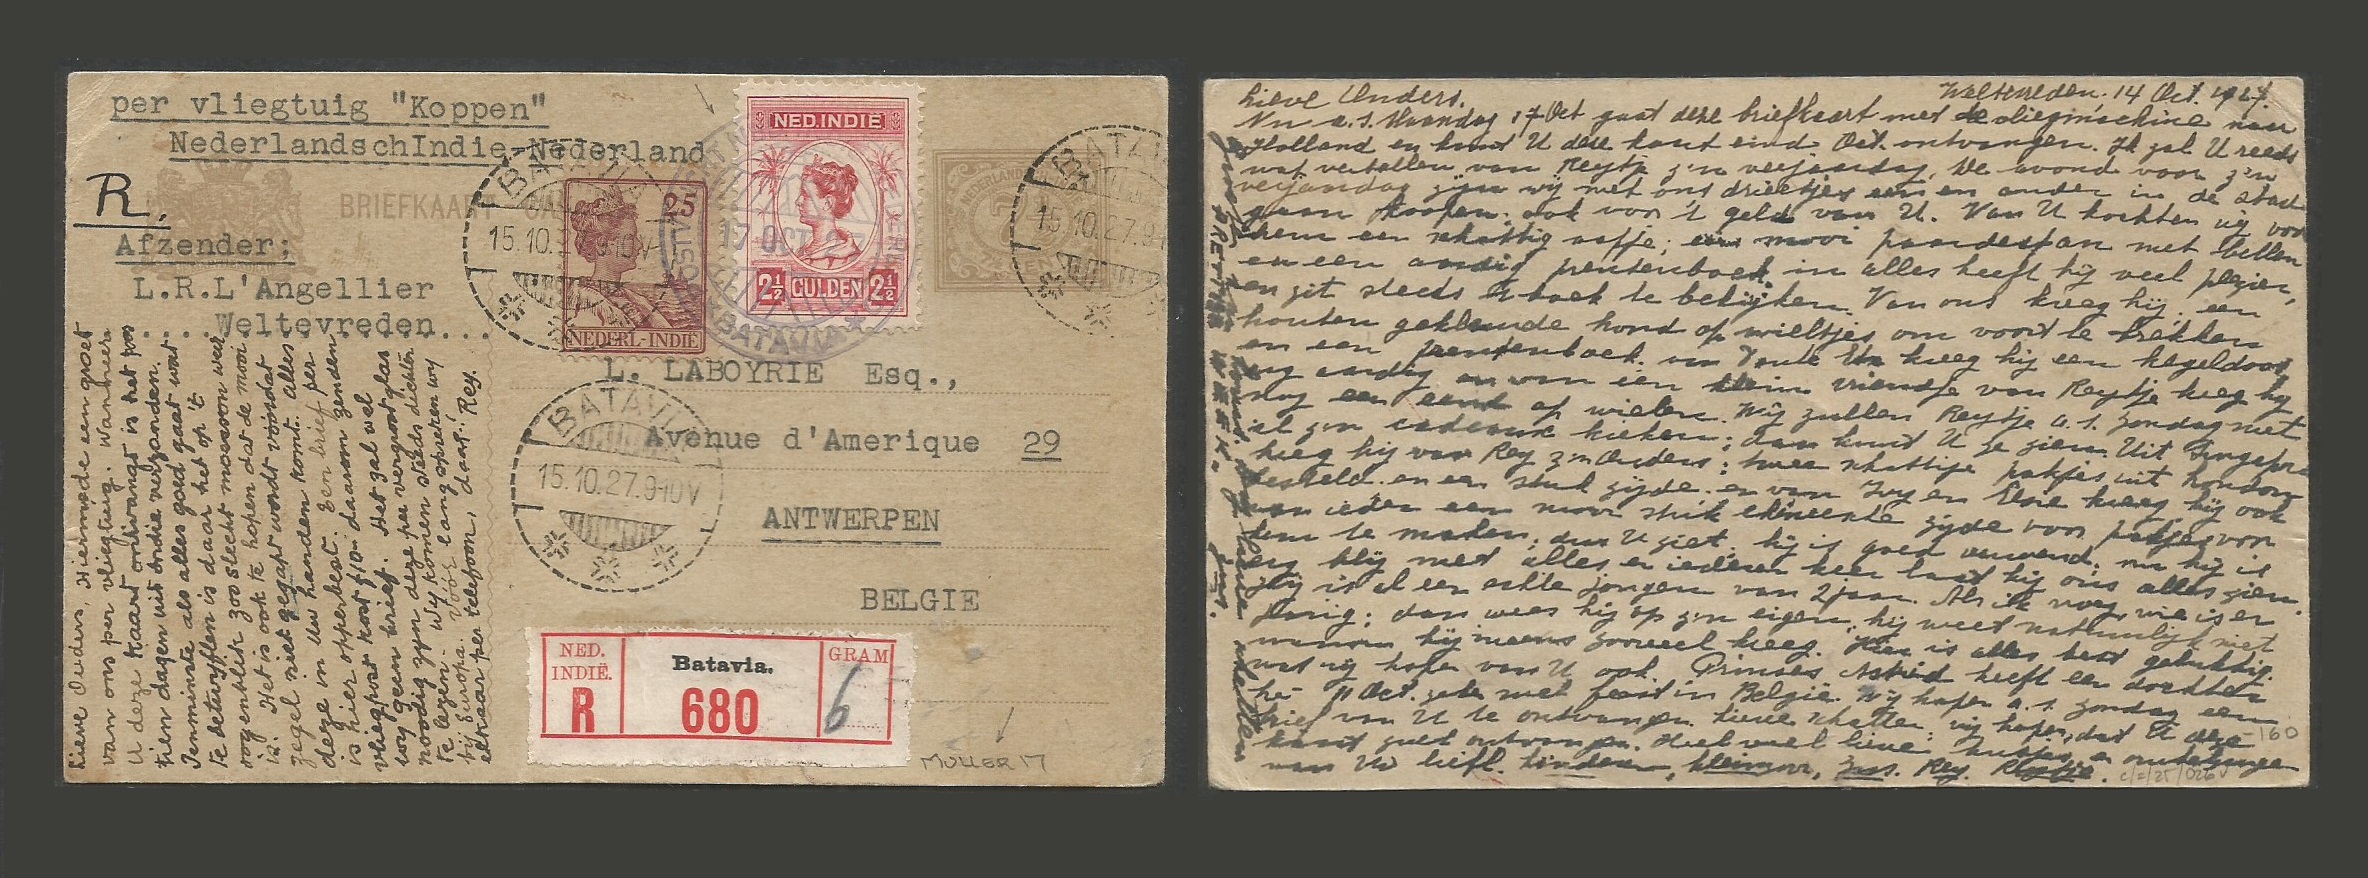 per vliegtuig "Koppen"
NederlandschIndie-Nederland
R.
BRIEFKAART
Afzender;
L.R.L'Angellier
....Weltevreden...
25
NEDERL-INDIË
NED.INDIË
2½ GULDEN 2½
17 OCT 27
BATAVIA
BATAVIA
15.10.27.9-10V
BATAVIA
15.10.27.9-10V
BATAVIA
15.10.27.9-10V
7½
L. LABOYRIE Esq.,
Avenue d'Amerique 29
ANTWERPEN
BELGIE
NED. INDIË.
R
Batavia.
680
GRAM
6
MULLER 17
Lieve Ouders, Hiermede een groet
van ons per vliegtuig. Wanneer
U deze kaart ontvangt is het pas
tien dagen uit Indie verzonden.
Tenminste als alles goed gaat want
te betwyfelen is daar het op 't
oogenblik zoo slecht moesson weer
is. Het is ook te hopen dat de mooie
zegel niet gegapt wordt voordat
deze in Uw handen komt. Alles
is hier opperbest. Een brief per
vliegpost kost f10- daarom zenden
wy geen brief. Het zal wel
noodig zyn deze per vergrootglas
te lezen. Wy komen steeds dichter
by Europa. Vóór lang spreken wy
elkaar per telefoon, daag! Rey.
Weltevreden. 14 Oct. 1927.
Lieve Ouders.
Nu a.s. Maandag 17 Oct gaat deze briefkaart met de vliegmachine naar
Holland en kunt U deze kaart eind Oct. ontvangen. Ik zal U reeds
wat vertellen van Reytje z'n verjaardag. De avond voor z'n
verjaardag zijn wij met ons drietjes een en ander in de stad
gaan koopen, ook voor 't geld van U. Van U kochten wij voor
hem een schattig aapje, een mooi paardespan met bellen
en een aardig prentenboek, in alles heeft hij veel plezier,
en zit steeds 't boek te bekijken. Van ons kreeg hij een
houten gekleurde hond op wieltjes om voort te trekken
en een prentenboek. van Tante kreeg hij een kegeldoos
erg aardig en van een klein vriendje van Reytje kreeg hij
nog een eend op wielen. Wij zullen Reytje a.s. zondag met
al z'n cadeaux kieken; dan kunt U ze zien. Uit
kreeg hij van Rey z'n Ouders; twee schattige pakjes uit London
besteld en een stuk zijde en van Ivy en Elsie kreeg hij ook
van ieder een mooi stuk chineesche zijde voor pakjes voor
hem te maken; dus U ziet hij is goed verwend. nu hij is
erg blij met alles en iedere keer laat hij ons alles zien.
Hij is al een echte jongen van 2 jaar. Als ik vraag wie is er
jarig; dan wees hij op z'n eigen, hij weet natuurlijk niet
waarom hij ineens zooveel kreeg. Hier is alles best gelukkig
wat wij hopen van U ook. Prinses Astrid heeft een dochter
11 Oct. zeker wel feest in België. Wij hopen a.s. zondag een
brief van U te ontvangen. Lieve schatten wij hopen, dat U deze
kaart goed ontvangen. Heel veel lieve kussen en omhelzingen
van Uw liefh. kinderen, kleinzoon, Zus. Rey. Reytje.
160
c/=/25/026